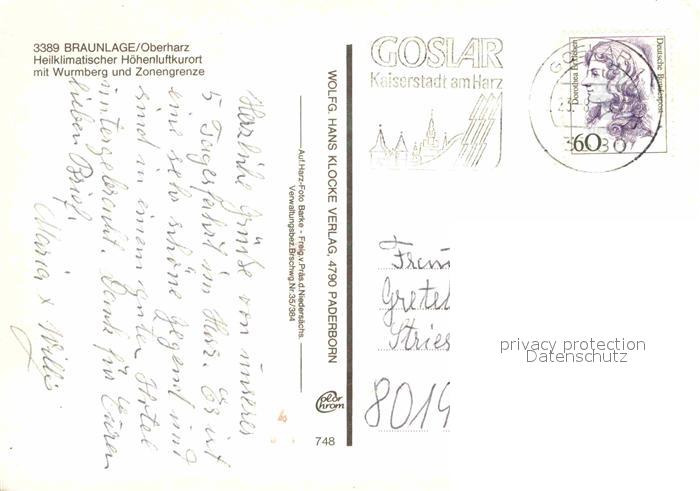 3389 BRAUNLAGE/Oberharz
Heilklimatischer Höhenluftkurort
mit Wurmberg und Zonengrenze
Herzliche Grüße von unserer
5 Tagesfahrt im Harz. Es ist
eine sehr schöne Gegend und
sind in einem guten Hotel
untergebracht. Dank für Euren
lieben Brief.
Maria + Willi
WOLFG. HANS KLOCKE VERLAG, 4790 PADERBORN
Auf.Harz-Foto Barke - Freig.v.Präs.d.Niedersächs.
Verwaltungsbez.Brschwg.Nr.35/384
Color
chrom
748
GOSLAR
Kaiserstadt am Harz
Deutsche Bundespost
Dorothea Erxleben
60
Frau
Gretel
Stries
8019
privacy protection
Datenschutz